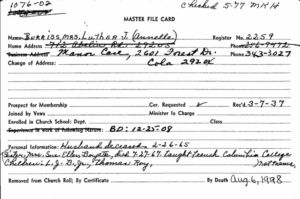 1076-02 Checked 5-77 MKH
MASTER FILE CARD
Name BURRISS, MRS. LUTHER J. (Annelle) Register No. 2259
Home Address 712 Abelia Rd. 29205 Phone
Business Address Manor Care, 2601 Forest Dr. Phone 343-3027
Change of Address: Cola 29204
Prospect for Membership Cor. Requested ✓ Rec'd 3-7-37
Joined by Vows Minister in Charge
Enrolled in Church School: Dept. Class
BD: 12-25-08
Information: Husband deceased 2-26-65
Sister, Mrs. Sue Ellen Died 7-27-67. Taught French Columbia College
Children: L. J. B. Jr., Thomas Roy,
Removed from Church Roll: By Certificate By Death Aug 6, 1998